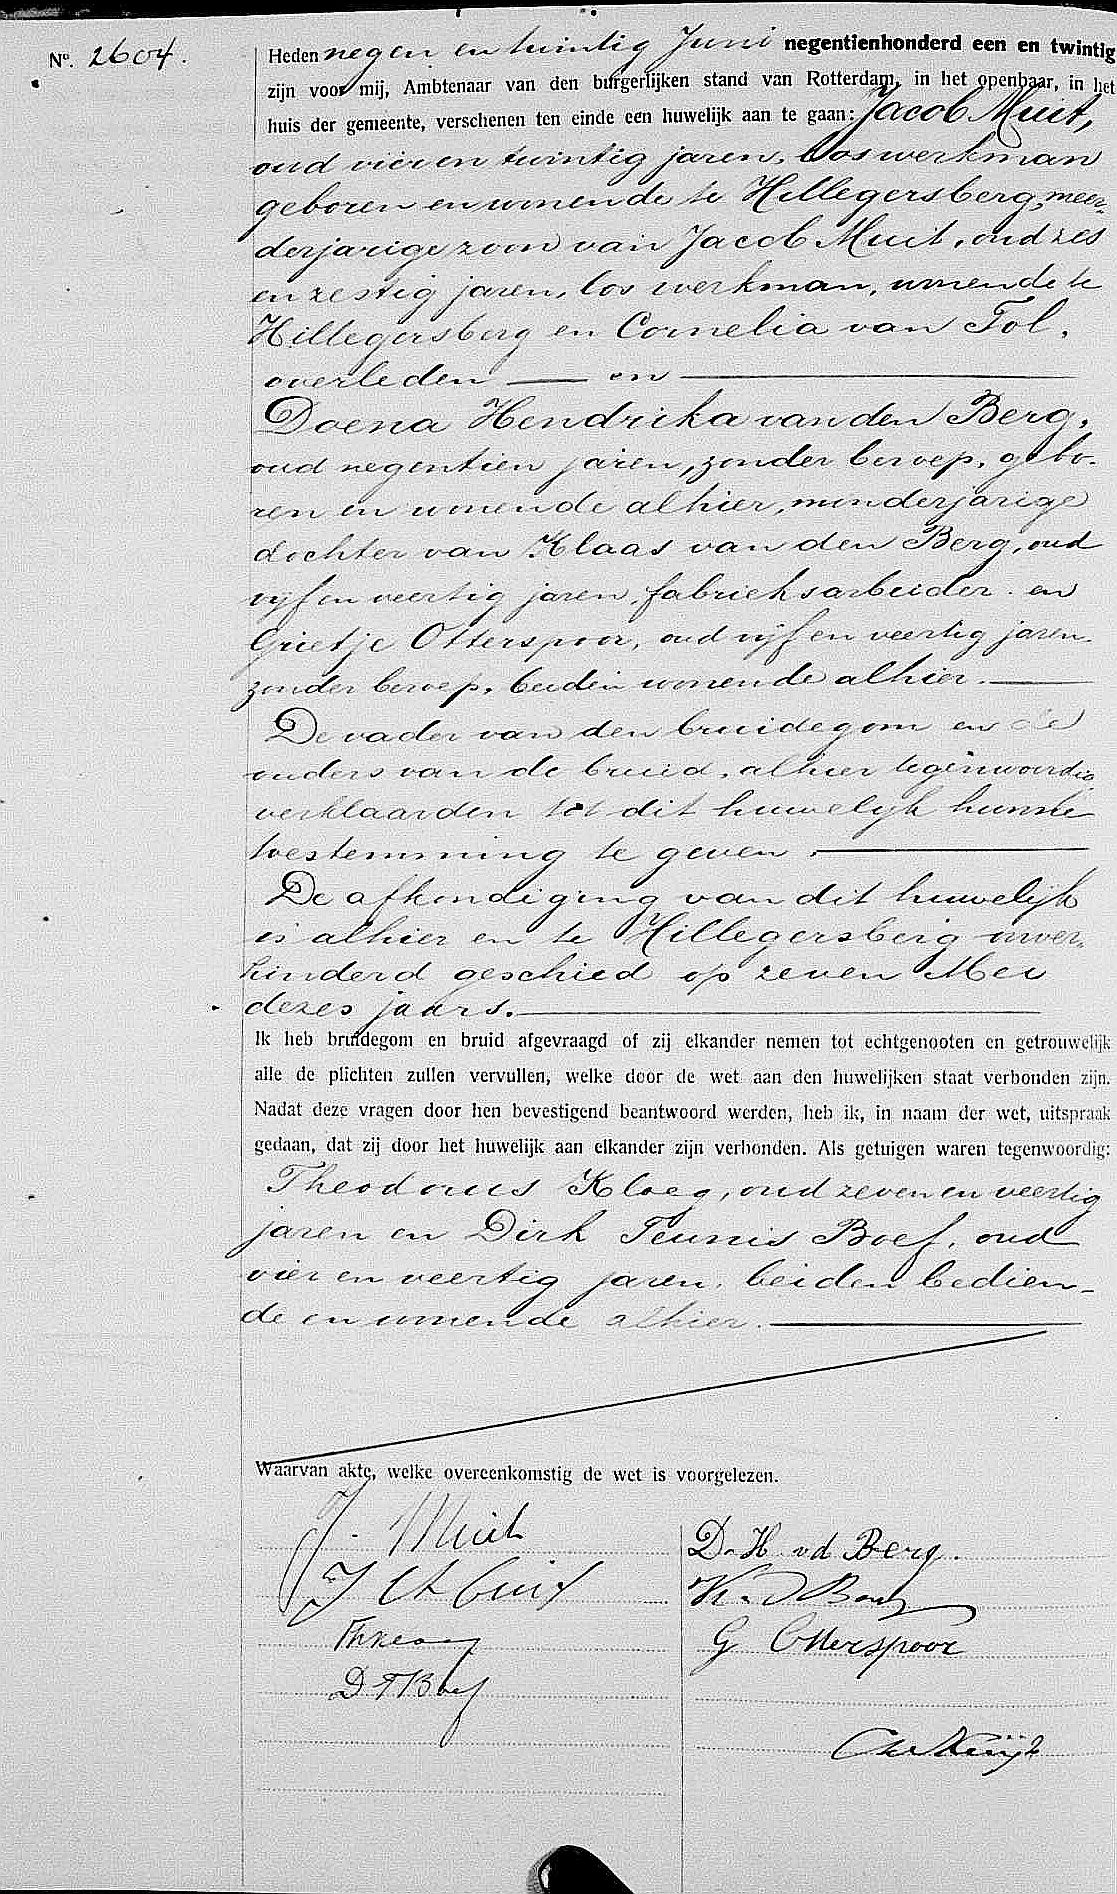 No. 2604.
Heden negen en twintig Juni negentienhonderd een en twintig
zijn voor mij, Ambtenaar van den burgerlijken stand van Rotterdam, in het openbaar, in het
huis der gemeente, verschenen ten einde een huwelijk aan te gaan: Jacob Muit,
oud vier en twintig jaren, los werkman
geboren en wonende te Hillegersberg, meer-
derjarige zoon van Jacob Muit, oud zes
en zestig jaren, los werkman, wonende te
Hillegersberg en Cornelia van Tol,
overleden — en —
Doena Hendrika van den Berg,
oud negentien jaren, zonder beroep, gebo-
ren en wonende alhier, minderjarige
dochter van Klaas van den Berg, oud
vijf en veertig jaren, fabrieksarbeider en
Grietje Otterspoor, oud vijf en veertig jaren
zonder beroep, beiden wonende alhier. —
De vader van den bruidegom en de
ouders van de bruid, alhier tegenwoordig
verklaarden tot dit huwelijk hunne
toestemming te geven. —
De afkondiging van dit huwelijk
is alhier en te Hillegersberg onver-
hinderd geschied op zeven Mei
dezes jaars. —
Ik heb bruidegom en bruid afgevraagd of zij elkander nemen tot echtgenooten en getrouwelijk
alle de plichten zullen vervullen, welke door de wet aan den huwelijken staat verbonden zijn.
Nadat deze vragen door hen bevestigend beantwoord werden, heb ik, in naam der wet, uitspraak
gedaan, dat zij door het huwelijk aan elkander zijn verbonden. Als getuigen waren tegenwoordig:
Theodorus Kloeg, oud zeven en veertig
jaren en Dirk Teunis Boef, oud
vier en veertig jaren, beiden bedien-
de en wonende alhier. —
Waarvan akte, welke overeenkomstig de wet is voorgelezen.
J. Muit
D. H. vd Berg.
J
K. v d Berg
G Otterspoor
D T Boef